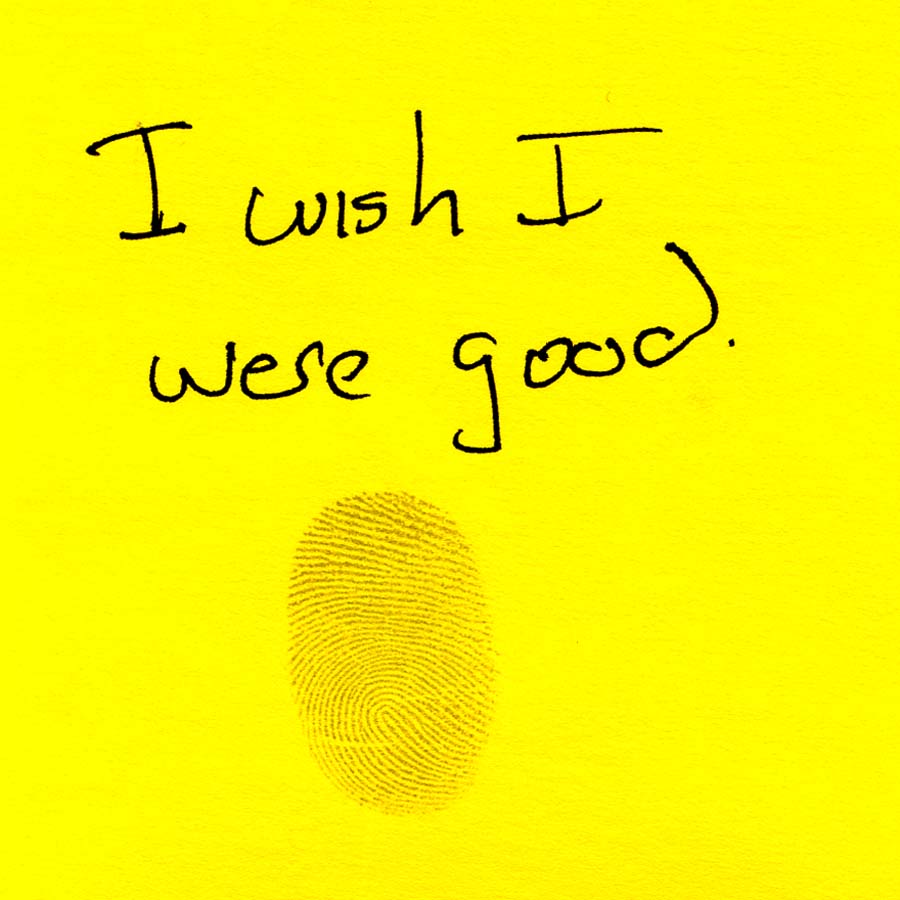 I wish I
were good.